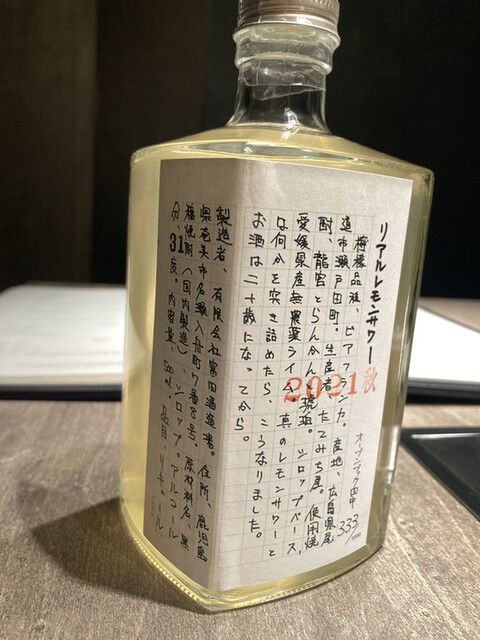 リアルレモンサワー
檸檬品種、ビアフランカ。産地、広島県尾
道市瀬戸田町。生産者、たてみち屋。使用焼
酎、龍宮とらんかんと琥珀。シロップベース、
愛媛県産無農薬ライム。真のレモンサワーと
は何かを突き詰めたら、こうなりました。
お酒は二十歳になってから。
2021秋
オープンブック田中
333/1000
製造者、有限会社富田酒造場。住所、鹿児島
県奄美市名瀬入舟町7番8号。原材料名、黒
糖焼酎（国内製造）、シロップ。アルコール
分、31度。内容量、500ml。品目、リキュール。